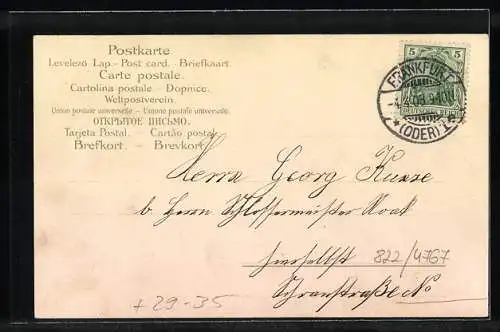 Postkarte
Levelező Lap. - Post card. - Briefkaart.
Carte postale.
Cartolina postale. - Dopisnice.
Weltpostverein.
Union postale universelle. - Unione postale universale.
ОТКРЫТОЕ ПИСЬМО.
Tarjeta Postal. - Cartão postal
Brefkort. - Brevkort.
5 5
FRANKFURT
* (ODER) 1
Herrn Georg Kunze
b. Herrn Schlossermeister Noak
hierselbst
822/4767
No
+29-35